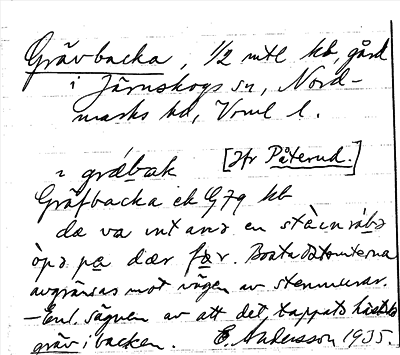 Grävbacka, 1/2 mtl kb, gård
i Järnskogs sn, Nord-
marks hd, Vrml l.
ɿ gräbak [Jfr Påterud.]
Gräfbacka ek G79 kb
dæ va int ana en stèinrába
òpa pa dær fær. Boatadstomterna
avgränsas mot vägen av stenmurar.
-Enl. sägnen av att det tappats hästs
gräv i backen. E. Andersson 1935.